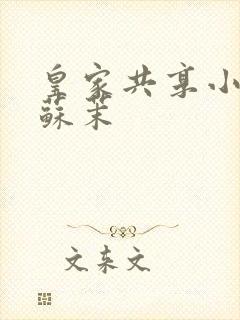 皇家共享小
蘇茉
文东文